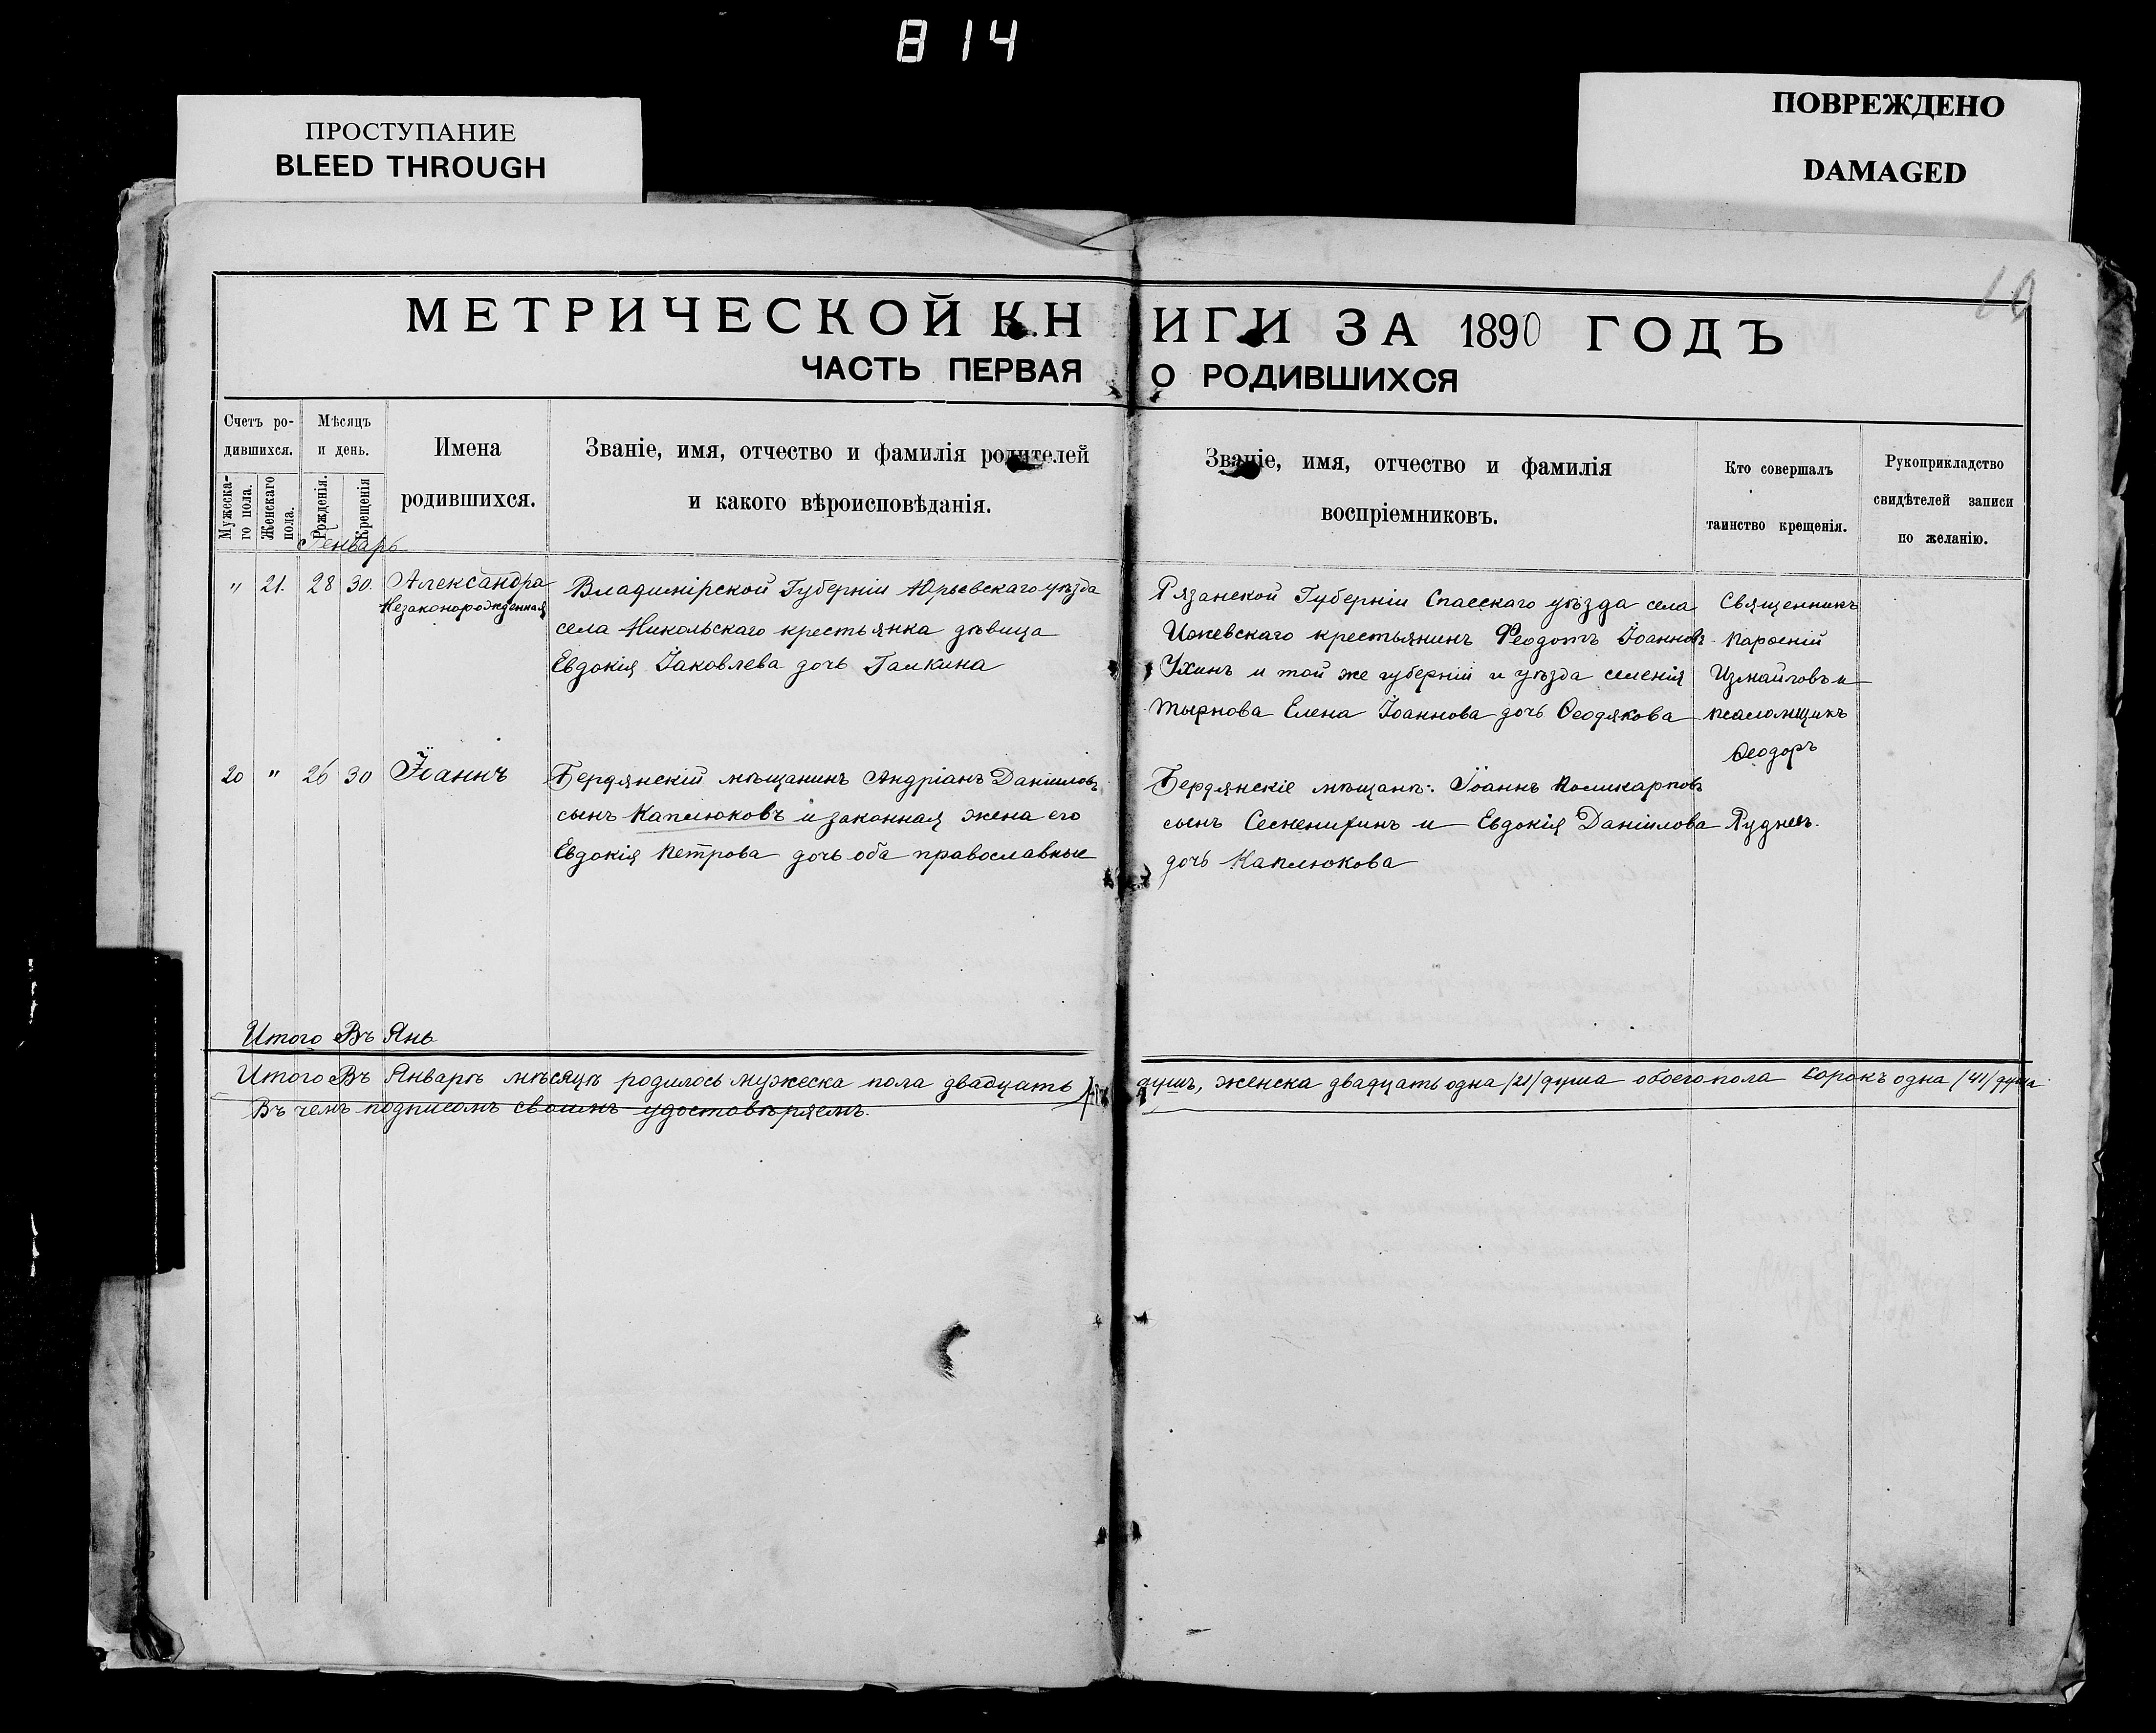 814
ПРОСТУПАНИЕ
BLEED THROUGH
ПОВРЕЖДЕНО
DAMAGED
МЕТРИЧЕСКОЙ КНИГИ ЗА 1890 ГОДЪ
ЧАСТЬ ПЕРВАЯ О РОДИВШИХСЯ
Счетъ ро-
дившихся.
Мужеска-
го пола.
Женскаго
пола.
Мѣсяцъ
и день.
Рожденія.
Крещенія
Имена
родившихся.
Званіе, имя, отчество и фамилія родителей
и какого вѣроисповѣданія.
Званіе, имя, отчество и фамилія
воспріемниковъ.
Кто совершалъ
таинство крещенія.
Рукоприкладство
свидѣтелей записи
по желанію.
Генварь
" 21. 28 30. Александра
Незаконорожденная
Владимірской Губерніи Юрьевскаго уѣзда
села Никольскаго крестьянка дѣвица
Евдокія Іаковлева дочь Галкина
Рязанской Губерніи Спасскаго уѣзда села
Ижевскаго крестьянинъ Феодотъ Іоанновъ
Ухинъ и той же губерніи и уѣзда селенія
Тырнова Елена Іоаннова дочь Ѳеодякова
Священникъ
Измайловъ и
псаломщикъ
Ѳеодоръ
Руднев.
20 " 26 30 Іоаннъ
Бердянскій мѣщанинъ Андріанъ Даніиловъ
сынъ Каплюковъ и законная жена его
Евдокія Петрова дочь оба православные
Бердянскіе мѣщане: Іоаннъ Поликарповъ
сынъ и Евдокія Даніилова
дочь Каплюкова
Итого Въ Янв
Итого Въ Январѣ мѣсяцѣ родилось мужеска пола двадцать душъ, женска двадцать одна /21/ душа обоего пола сорокъ одна /41/ душа
Въ чемъ подписомъ своимъ удостовѣряемъ.